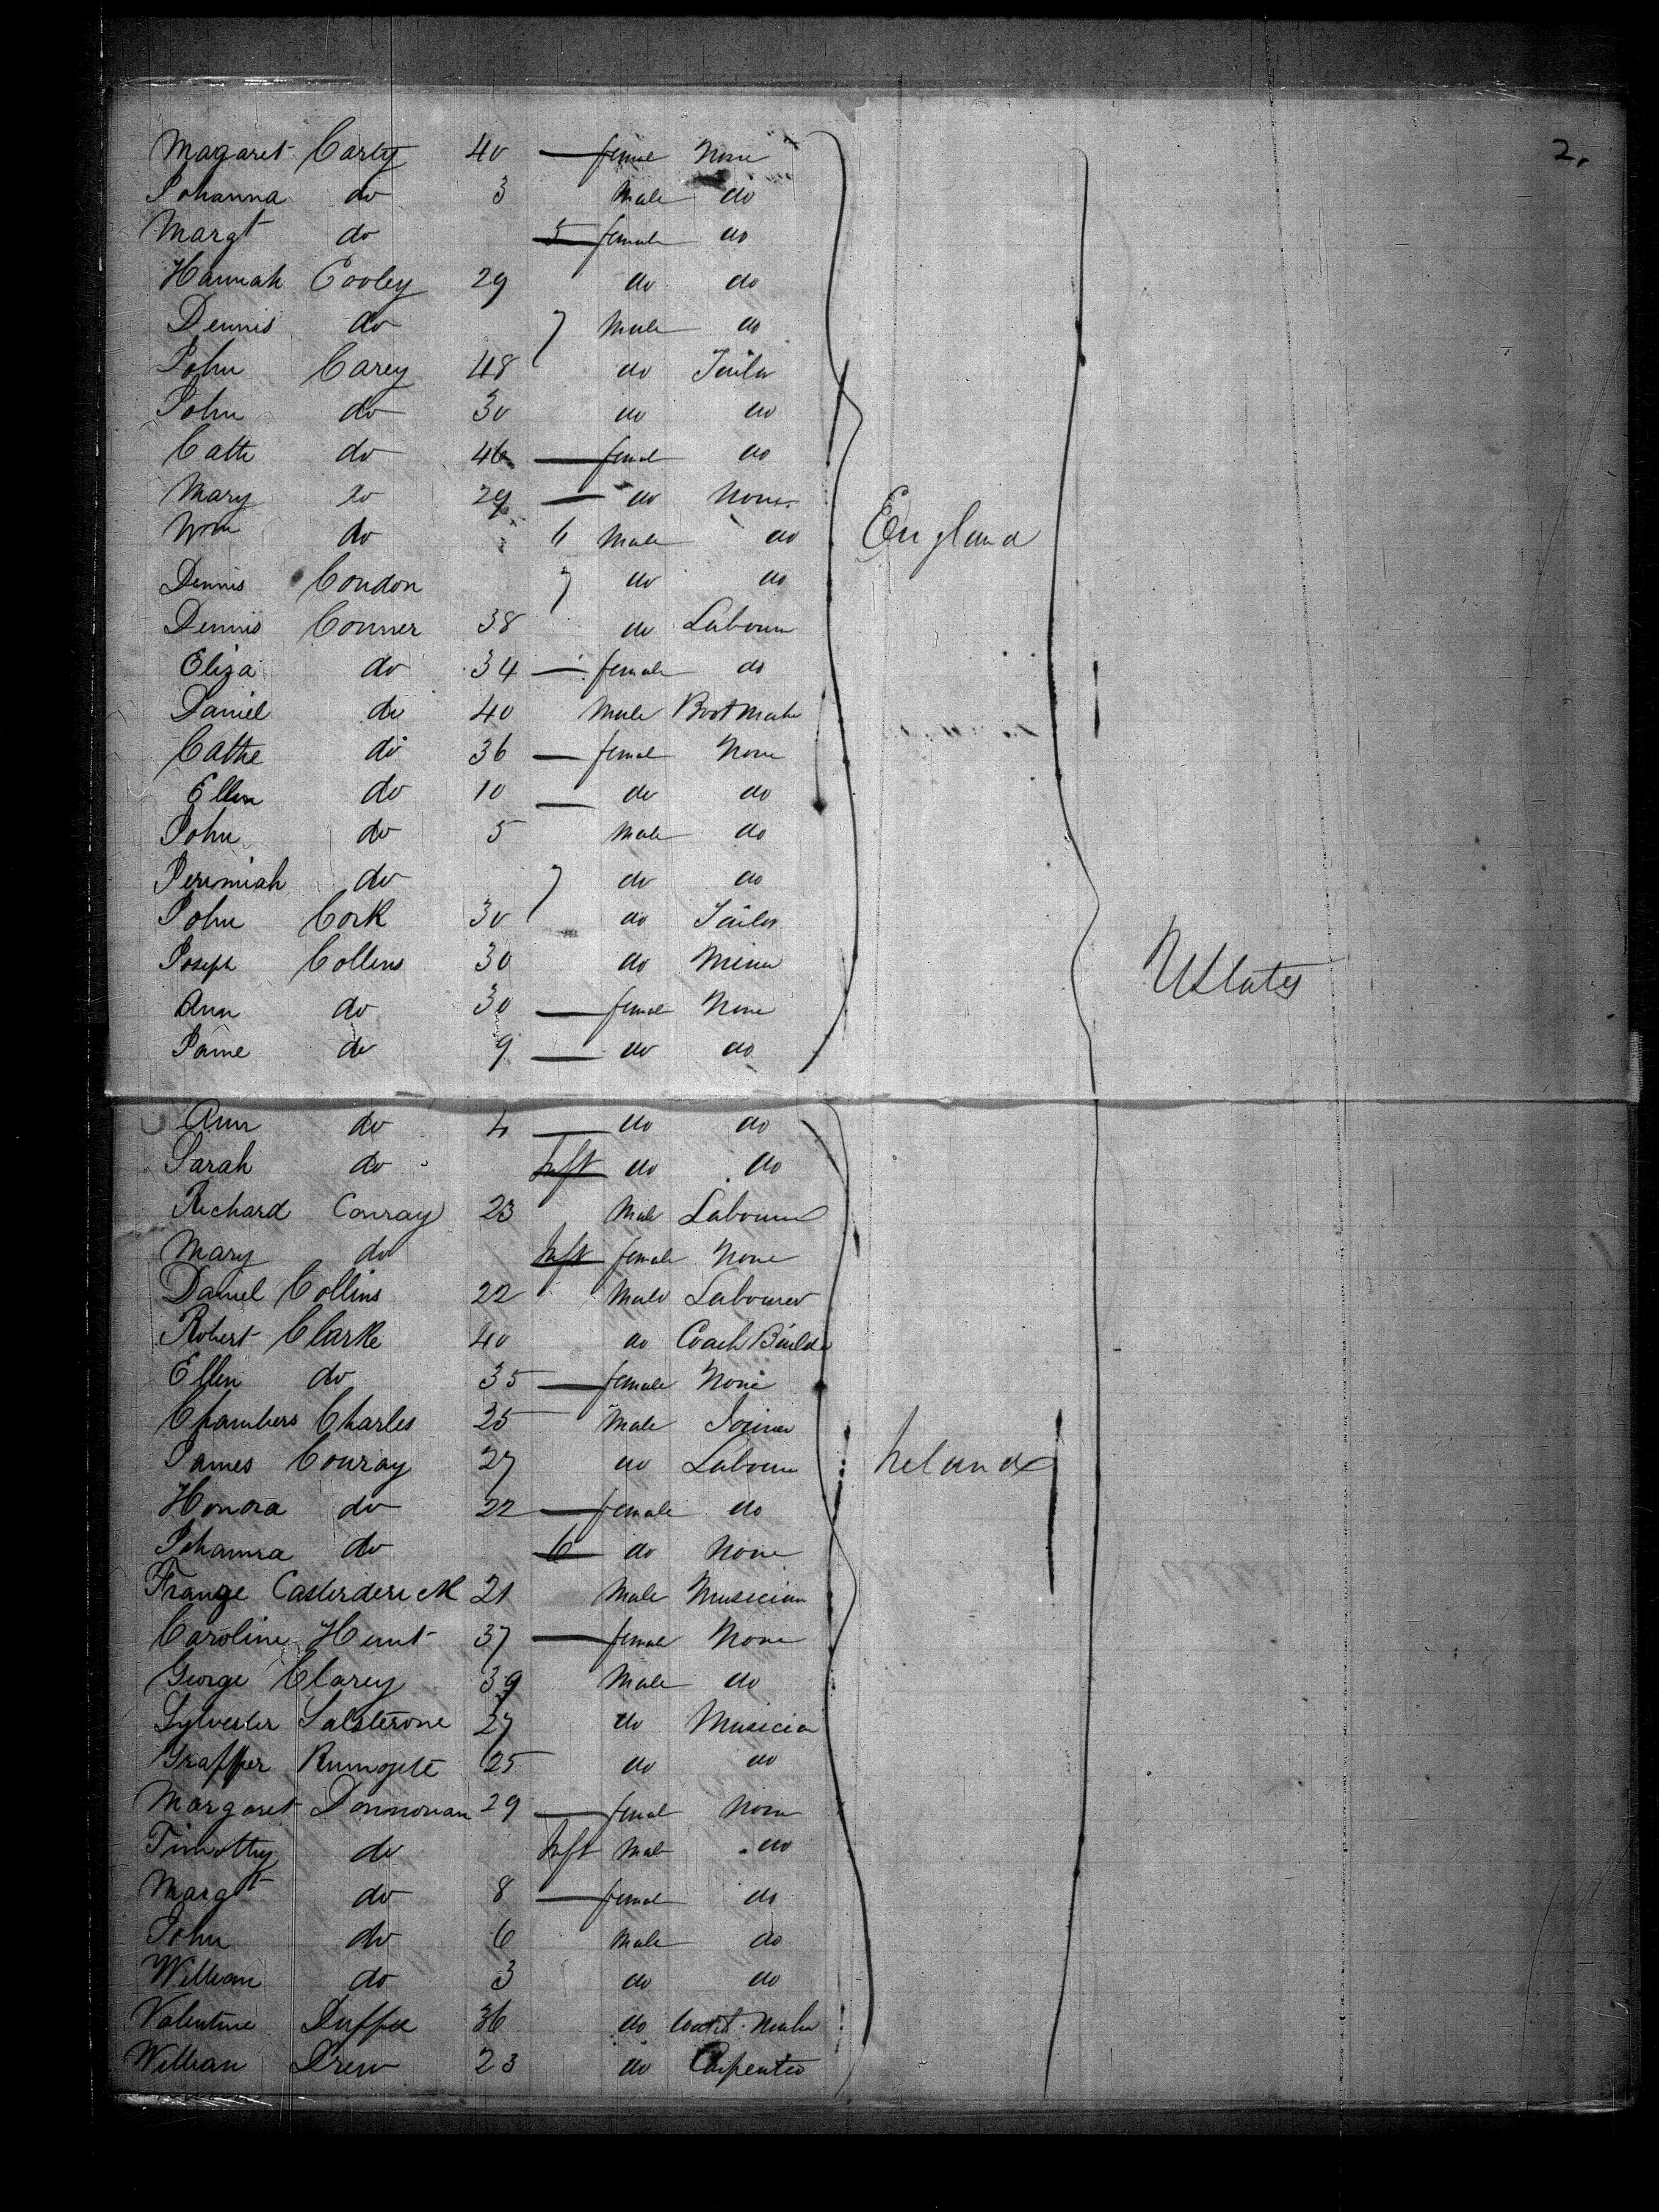 2.
Magaret Carty 40 — female None
Johanna do 3 Male do
Margt do 5 female do
Hannah Cooley 29 do do
Dennis do 7 Male do
John Carey 48 do Tailor
John do 30 do do
Cathe do 46 — femal do
Mary do 29 — do None
Wm do 6 Male do
Dennis Condon 7 do do
Dennis Conner 38 do Labourer
Eliza do 34 — female do
Daniel do 40 Male Bootmaker
Cathe do 36 — female None
Ellen do 10 — do do
John do 5 Male do
Jeremiah do 7 do do
John Cork 30 do Tailor
Joseph Collens 30 do Miner
Ann do 30 — female None
Jame do 9 — do do
England
UStates
Ann do 4 — do do
Sarah do Inft do do
Richard Conray 23 Male Labourer
Mary do Inft female None
Daniel Collins 22 Male Labourer
Robert Clarke 40 do Coach Builder
Ellen do 35 — female None
Chambers Charles 25 Male Joiner
James Conray 27 do Labourer
Honora do 22 — female do
Johanna do 6 do None
Frange Casterdere M 21 Male Musician
Caroline Hunt 37 — female None
George Clarey 39 Male do
Sylvester Salsterone 27 do Musician
25 do do
Margaret Donnovan 29 — female None
Timothy do Inft Male do
Margt do 8 — female do
John do 6 Male do
William do 3 do do
Valentine Duffee 36 do Maker
William Drew 23 do Carpenter
Ireland